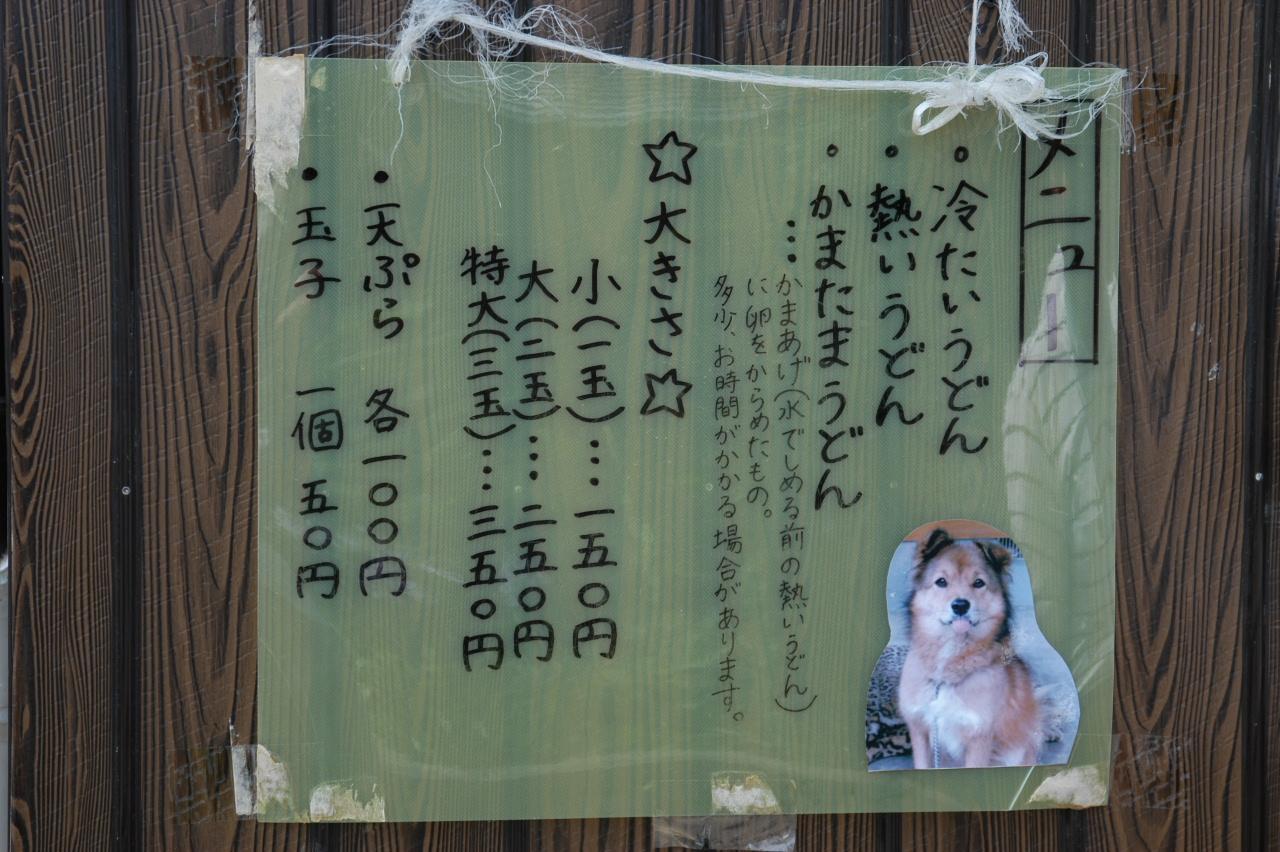 メニュー
・冷たいうどん
・熱いうどん
・かまたまうどん
…かまあげ(水でしめる前の熱いうどん)
に卵をからめたもの。
多少、お時間がかかる場合があります。
☆大きさ☆
小(一玉)…一五〇円
大(二玉)…二五〇円
特大(三玉)…三五〇円
・天ぷら 各一〇〇円
・玉子 一個 五〇円